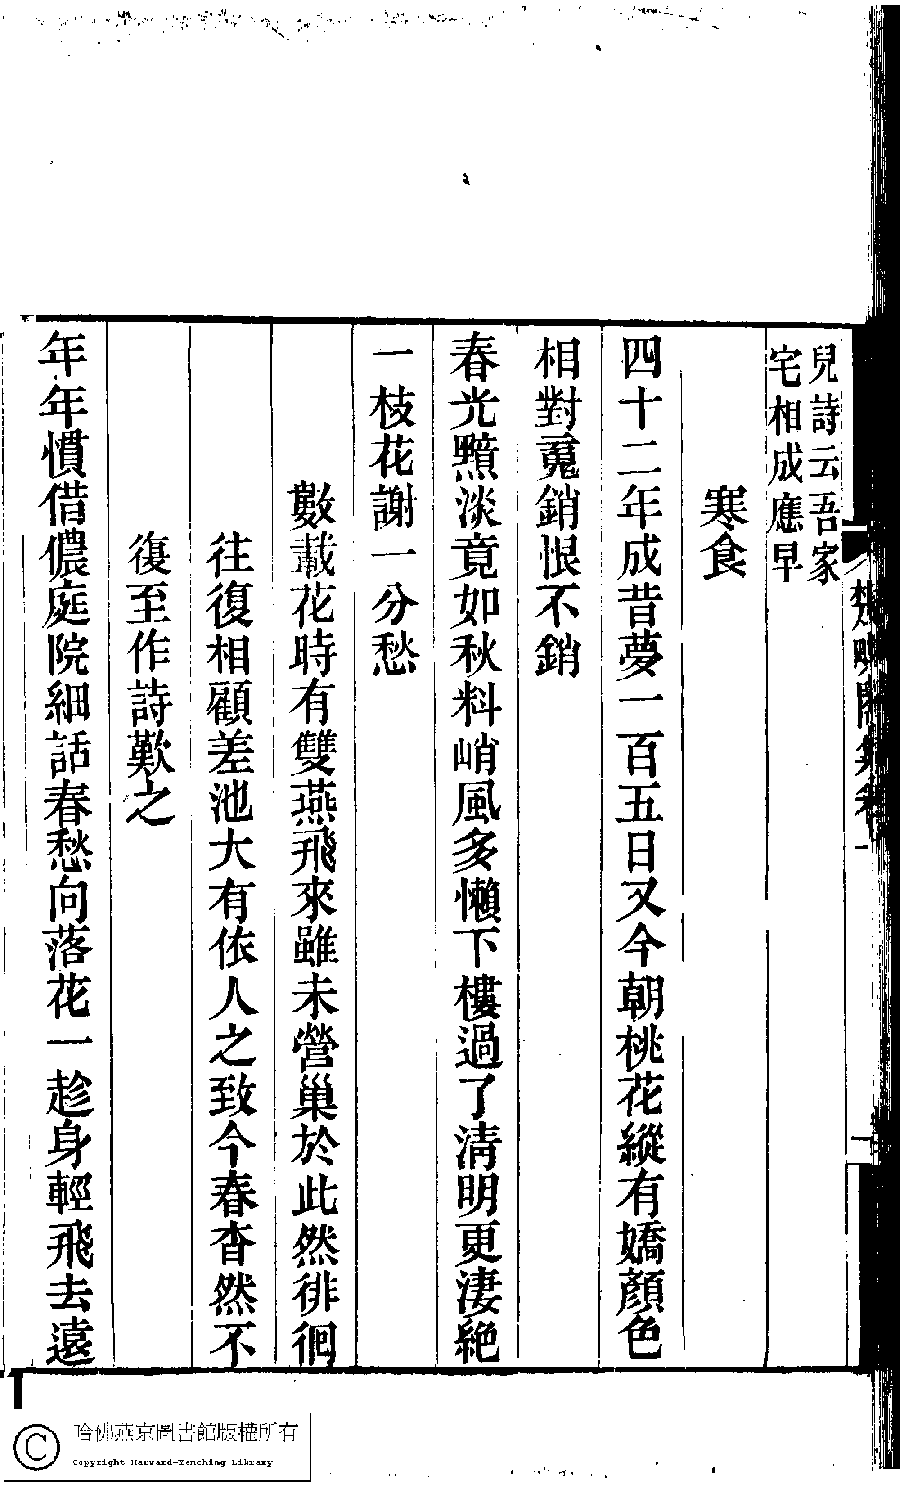 兒詩云吾家
宅相成應早
寒食
四十二年成昔夢一百五日又今朝桃花縱有嬌顏色
相對䰟銷恨不銷
春光黯淡竟如秋料峭風多懶下樓過了清明更淒絕
一枝花謝一分愁
數載花時有雙燕飛來雖未營巢於此然徘徊
往復相顧差池大有依人之致今春杳然不
復至作詩歎之
年年慣借儂庭院細話春愁向落花一趁身輕飛去遠
哈佛燕京圖書館版權所有
Copyright Harvard-Yenching Library